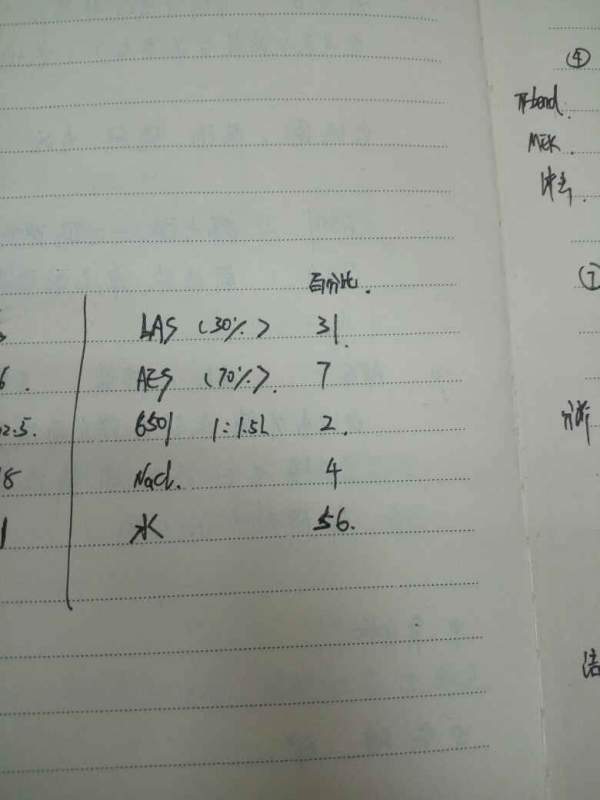 百分比.
LAS (30%) 31.
AES (70%). 7
6501 1:1.5L 2.
NaCl. 4
水 56.
6.
02.5.
18
1
④
MEK.
冲击.
①
分析
洁